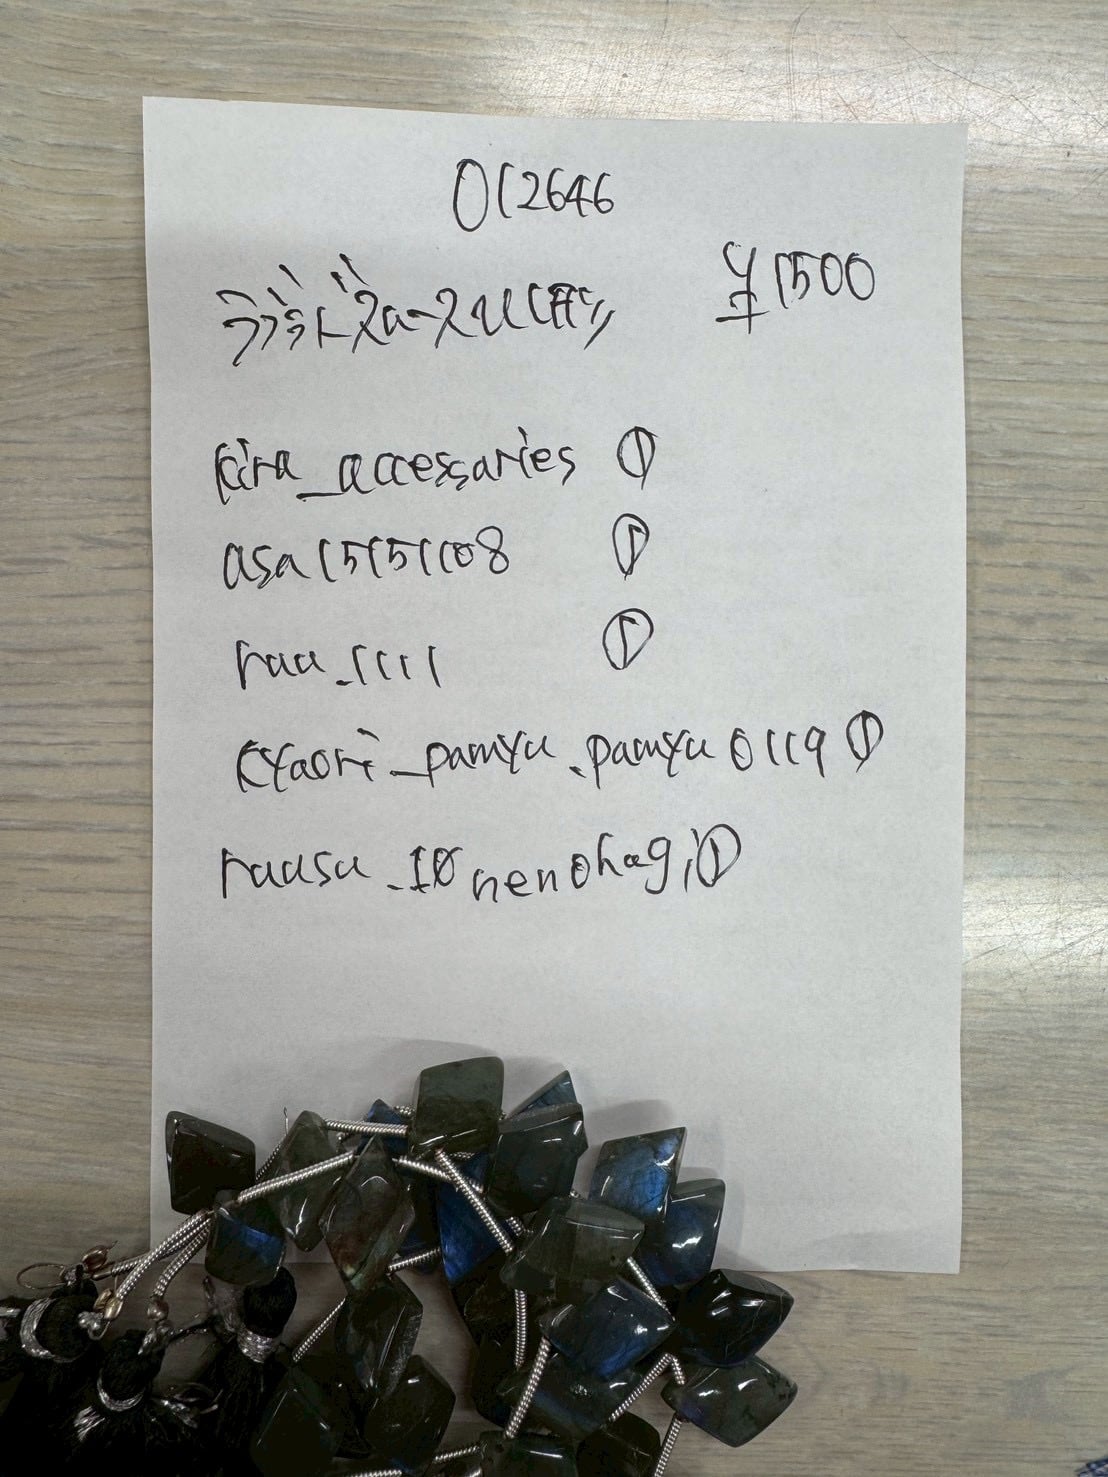 012646
¥1500
kira_accessaries ①
asa15151108 ①
raa.1111 ①
kyaori_pamyu.pamyu0119 ①
raasu.10nenohagi ①